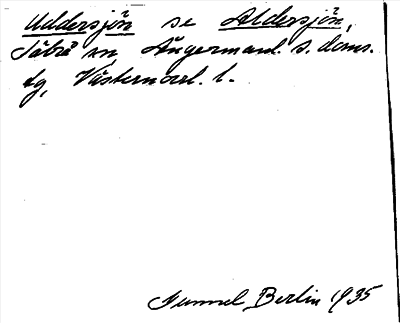 Uddersjön se Aldersjön,
Säbrå sn, Ångermanl. s. doms.
tg, Västernorrl. l.
Gunnel Berlin 1935